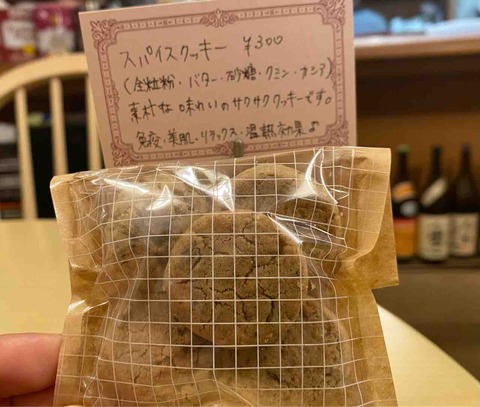 スパイスクッキー ¥300
(全粒粉・バター・砂糖・クミン・カシア)
素朴な味わいのサクサククッキーです。
免疫・美肌・リラックス・温熱効果♪